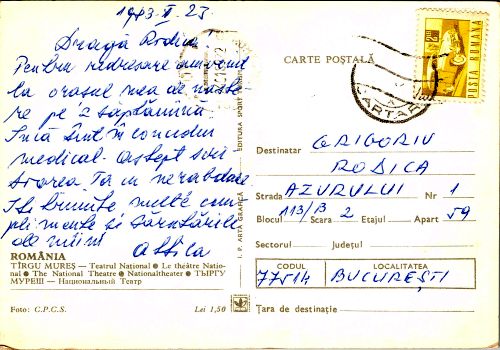 1983 II 23
Dragă Rodica
Pentru redresare am venit
la orașul mea de naște
re pe 2 săptămînă
Încă sînt în concediu
medical. Aștept scri
soarea Ta cu nerabdare
Iți trimite multe com
plimente și sărutările
de mîini
Attila
ROMÂNIA
TÎRGU MUREȘ — Teatrul National ● Le théâtre Natio-
nal ● The National Theatre ● Nationaltheater ● ТЫРГУ
МУРЕШ — Национальный Театр
Foto: C.P.C.S.
Lei 1,50
I. P. ARTA GRAFICĂ
EDITURA SPORT
CARTE POȘTALĂ
POSTA ROMANA
Destinatar GRIGORIU
RODICA
Strada AZURULUI Nr 1
Blocul 113/B Scara 2 Etajul Apart 59
Sectorul Județul
CODUL LOCALITATEA
77514 BUCUREȘTI
Țara de destinație